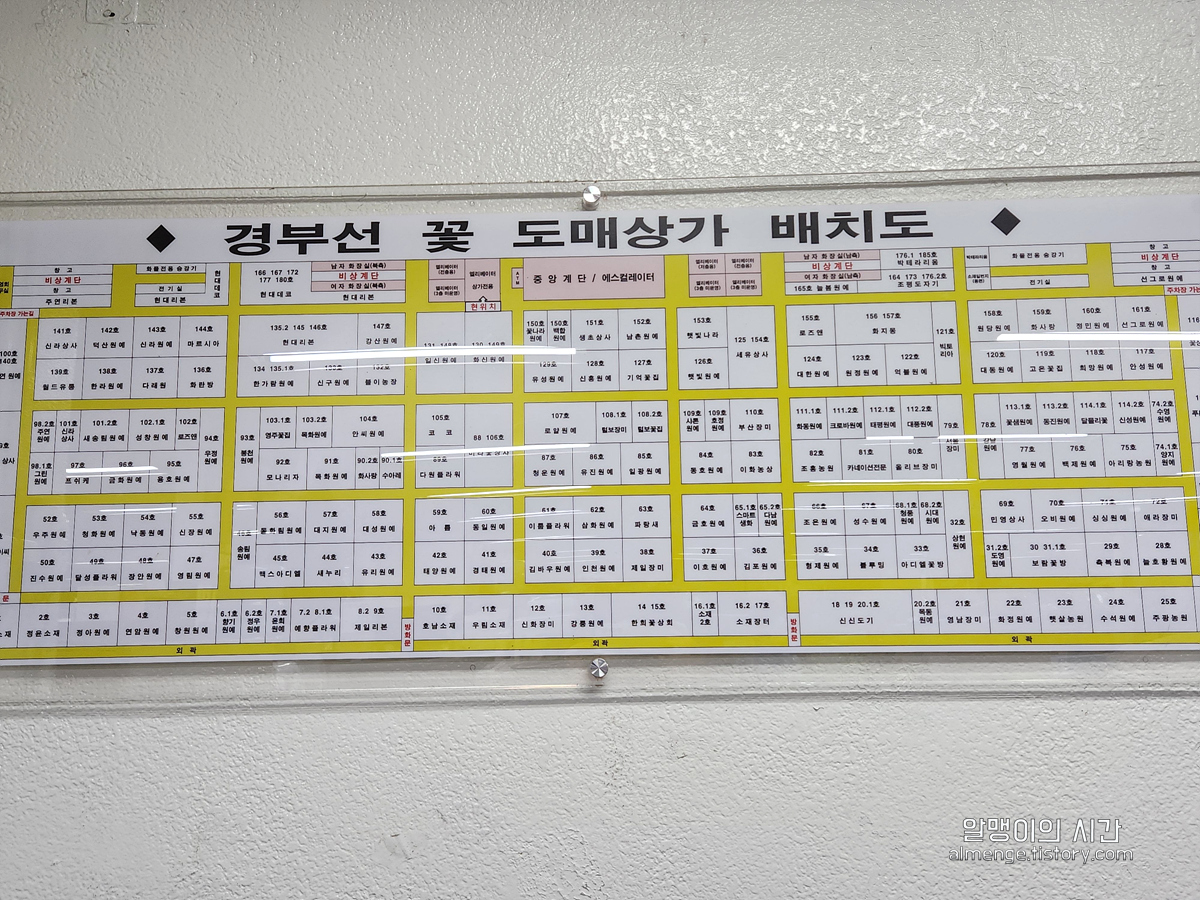 ◆ 경부선 꽃 도매상가 배치도 ◆
창 고
비상계단
창 고
주연리본
화물전용 승강기
전기실
현대리본
현대데코
166 167 172
177 180호
현대데코
남자 화장실(북측)
비상계단
여자 화장실(북측)
현대리본
엘리베이터
엘리베이터
상가전용
현위치
ATM
중앙계단 / 에스컬레이터
남자 화장실(남측)
비상계단
여자 화장실(남측)
165호 늘봄원예
176.1 185호
박테라리움
164 173 176.2호
조평도자기
화물전용 승강기
전기실
창 고
비상계단
창 고
선그로원예
주차장 가는길
141호 142호 143호 144호
신라상사 덕산원예 신라원예 마르시아
139호 138호 137호 136호
월드유통 한라원예 다래원 화란방
135.2 145 146호 147호
현대리본 강산원예
134 135.1호
한가람원예 신구원예 봄이농장
일신원예 화신원예
150호 꽃나라 150호 백합원예 151호 152호
생초상사 남촌원예
129호 128호 127호
유성원예 신흥원예 기억꽃집
153호
햇빛나라
125 154호
세유상사
126호
햇빛원예
155호 156 157호
로즈앤 화지몽
121호 빅토리아
124호 123호 122호
대한원예 원정원예 억불원예
158호 159호 160호 161호
원당원예 화사랑 정민원예 선그로원예
120호 119호 118호 117호
대동원예 고은꽃집 희망원예 안성원예
98.2호 주연원예 101호 신라상사 101.2호 102.1호 102호
새송림원예 성창원예 로즈앤
94호 우정원예
98.1호 그린원예 97호 96호 95호
프쉬케 금화원예 용호원예
93호 봉천원예
103.1호 103.2호 104호
영주꽃집 목화원예 안씨원예
92호 91호 90.2호 90.1호
모나리자 목화원예 화사랑 수아레
105호 88 106호
코 코
89호
다원플라워
107호 108.1호 108.2호
로얄원예 털보장미 털보꽃집
87호 86호 85호
청운원예 유진원예 일광원예
109호 사론원예 109호 호정원예 110호
부산장미
84호 83호
동호원예 이화농상
111.1호 111.2호 112.1호 112.2호
화동원예 크로바원예 태평원예 대풍원예
79호
82호 81호 80호
조흥농원 카네이션전문 올리브장미
78호 강남원예
113.1호 113.2호 114.1호 114.2호
꽃샘원예 동진원예 달뜰리꽃 신성원예
74.2호 수영원예
77호 76호 75호
영월원예 백제원예 아리랑농원
74.1호 양지원예
52호 53호 54호 55호
우주원예 청화원예 낙동원예 신장원예
50호 49호 48호 47호
진수원예 달성플라워 장안원예 영림원예
송림원예
56호 57호 58호
물한림원예 대지원예 대성원예
45호 44호 43호
맥스아디엘 새누리 유리원예
59호 60호
아 름 동일원예
42호 41호
태양원예 경태원예
61호 62호 63호
이름플라워 삼화원예 파랑새
40호 39호 38호
김바우원예 인천원예 제일장미
64호 65.1호 스마트생화 65.2호 다남원예
금호원예
37호 36호
이호원예 김포원예
66호 67호 68.1호 청풍원예 68.2호 시대원예
조은원예 성수원예
32호 삼현원예
35호 34호 33호
형제원예 블루밍 아디엘꽃방
69호 70호 71호 72호
민영상사 오비원예 싱싱원예 애라장미
31.2호 도영원예 30 31.1호 29호 28호
보람꽃방 축복원예 늘호황원예
2호 3호 4호 5호
정윤소재 정아원예 연암원예 창원원예
6.1호 향기원예 6.2호 정우원예 7.1호 윤희원예
7.2 8.1호 8.2 9호
예향플라워 제일리본
방화문
10호 11호 12호 13호 14 15호
호남소재 우림소재 신화장미 강릉원예 한희꽃상회
16.1호 소재2호 16.2 17호
소재장터
방화문
18 19 20.1호
신신도기
20.2호 목동원예
21호 22호 23호 24호 25호
영남장미 화정원예 햇살농원 수석원예 주왕농원
외 곽
외 곽
외 곽
알맹이의 시간
almenge.tistory.com